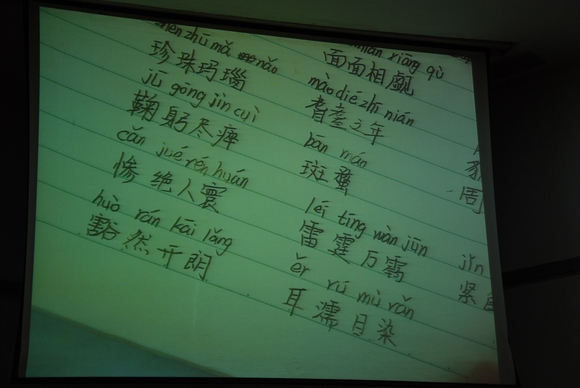 zhēn zhū mǎ nǎo
珍珠玛瑙
jū gōng jìn cuì
鞠躬尽
cǎn jué rén huán
惨绝人寰
huò rán kāi lǎng
豁然开朗
miàn xiāng qù
面面相觑
mào dié zhī nián
耄耋之年
bān mán
斑蝥
léi tíng wàn jūn
雷霆万
ěr rú mù rǎn
耳濡目染
周
jǐn
紧